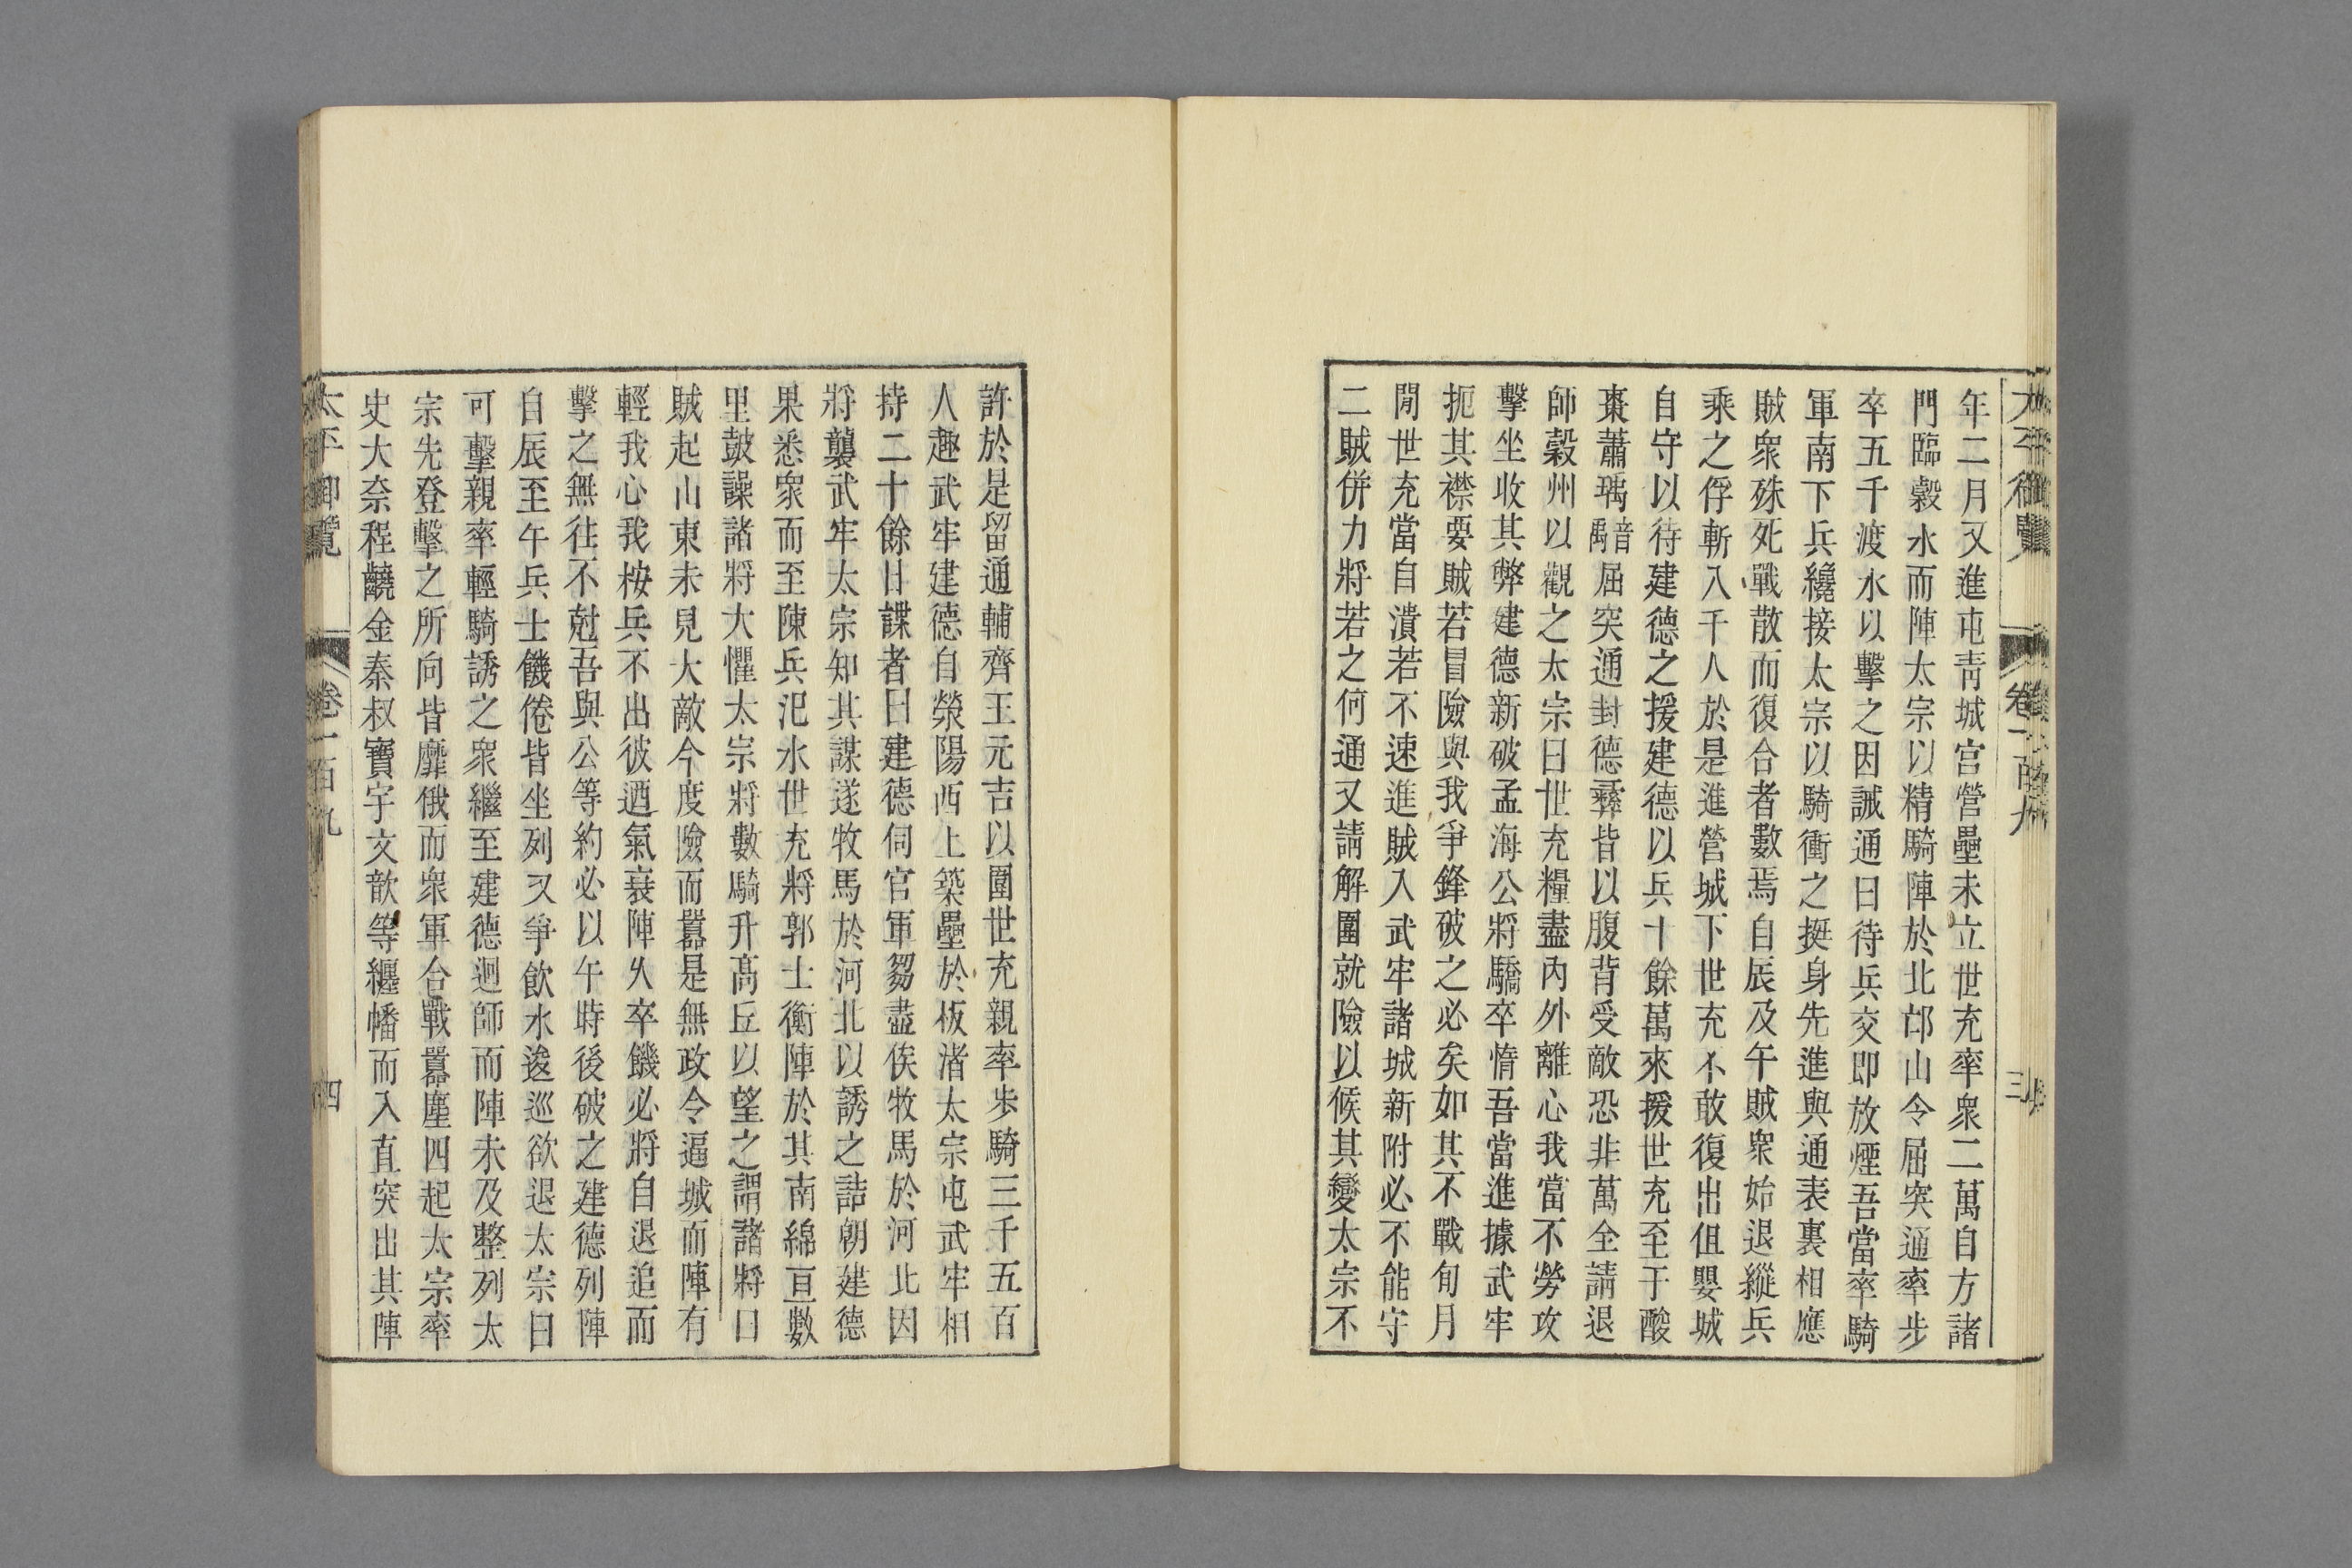 年二月又進屯靑城宮營壘未立世充率衆二萬自方諸
門臨穀水而陣太宗以精騎陣於北邙山令屈突通率步
卒五千渡水以擊之因誡通曰待兵交即放煙吾當率騎
軍南下兵纔接太宗以騎衝之挺身先進與通表裏相應
賊衆殊死戰散而復合者數焉自辰及午賊衆始退縱兵
乘之俘斬入千人於是進營城下世充不敢復出但嬰城
自守以待建德之援建德以兵十餘萬來援世充至于酸
棗蕭瑀音禹屈突通封德彝皆以腹背受敵恐非萬全請退
師穀州以觀之太宗曰世充糧盡內外離心我當不勞攻
擊坐收其弊建德新破孟海公將驕卒惰吾當進據武牢
扼其襟要賊若冒險與我爭鋒破之必矣如其不戰旬月
閒世充當自潰若不速進賊入武牢諸城新附必不能守
二賊併力將若之何通又請解圍就險以候其變太宗不
許於是留通輔齊王元吉以圍世充親率步騎三千五百
人趣武牢建德自滎陽西上築壘於板渚太宗屯武牢相
持二十餘日諜者曰建德伺官軍芻盡俟牧馬於河北因
將襲武牢太宗知其謀遂牧馬於河北以誘之詰朝建德
果悉衆而至陳兵汜水世充將郭士衡陣於其南綿亘數
里鼓譟諸將大懼太宗將數騎升髙丘以望之謂諸將曰
賊起山東未見大敵今度險而囂是無政令逼城而陣有
輕我心我桉兵不出彼迺氣衰陣久卒饑必將自退追而
擊之無往不尅吾與公等約必以午時後破之建德列陣
自辰至午兵士饑倦皆坐列又爭飲水逡巡欲退太宗曰
可擊親率輕騎誘之衆繼至建德迴師而陣未及整列太
宗先登擊之所向皆靡俄而衆軍合戰囂塵四起太宗率
史大奈程齩金秦叔寶宇文歆等纏幡而入直突出其陣
太平御覽
卷一百九
四